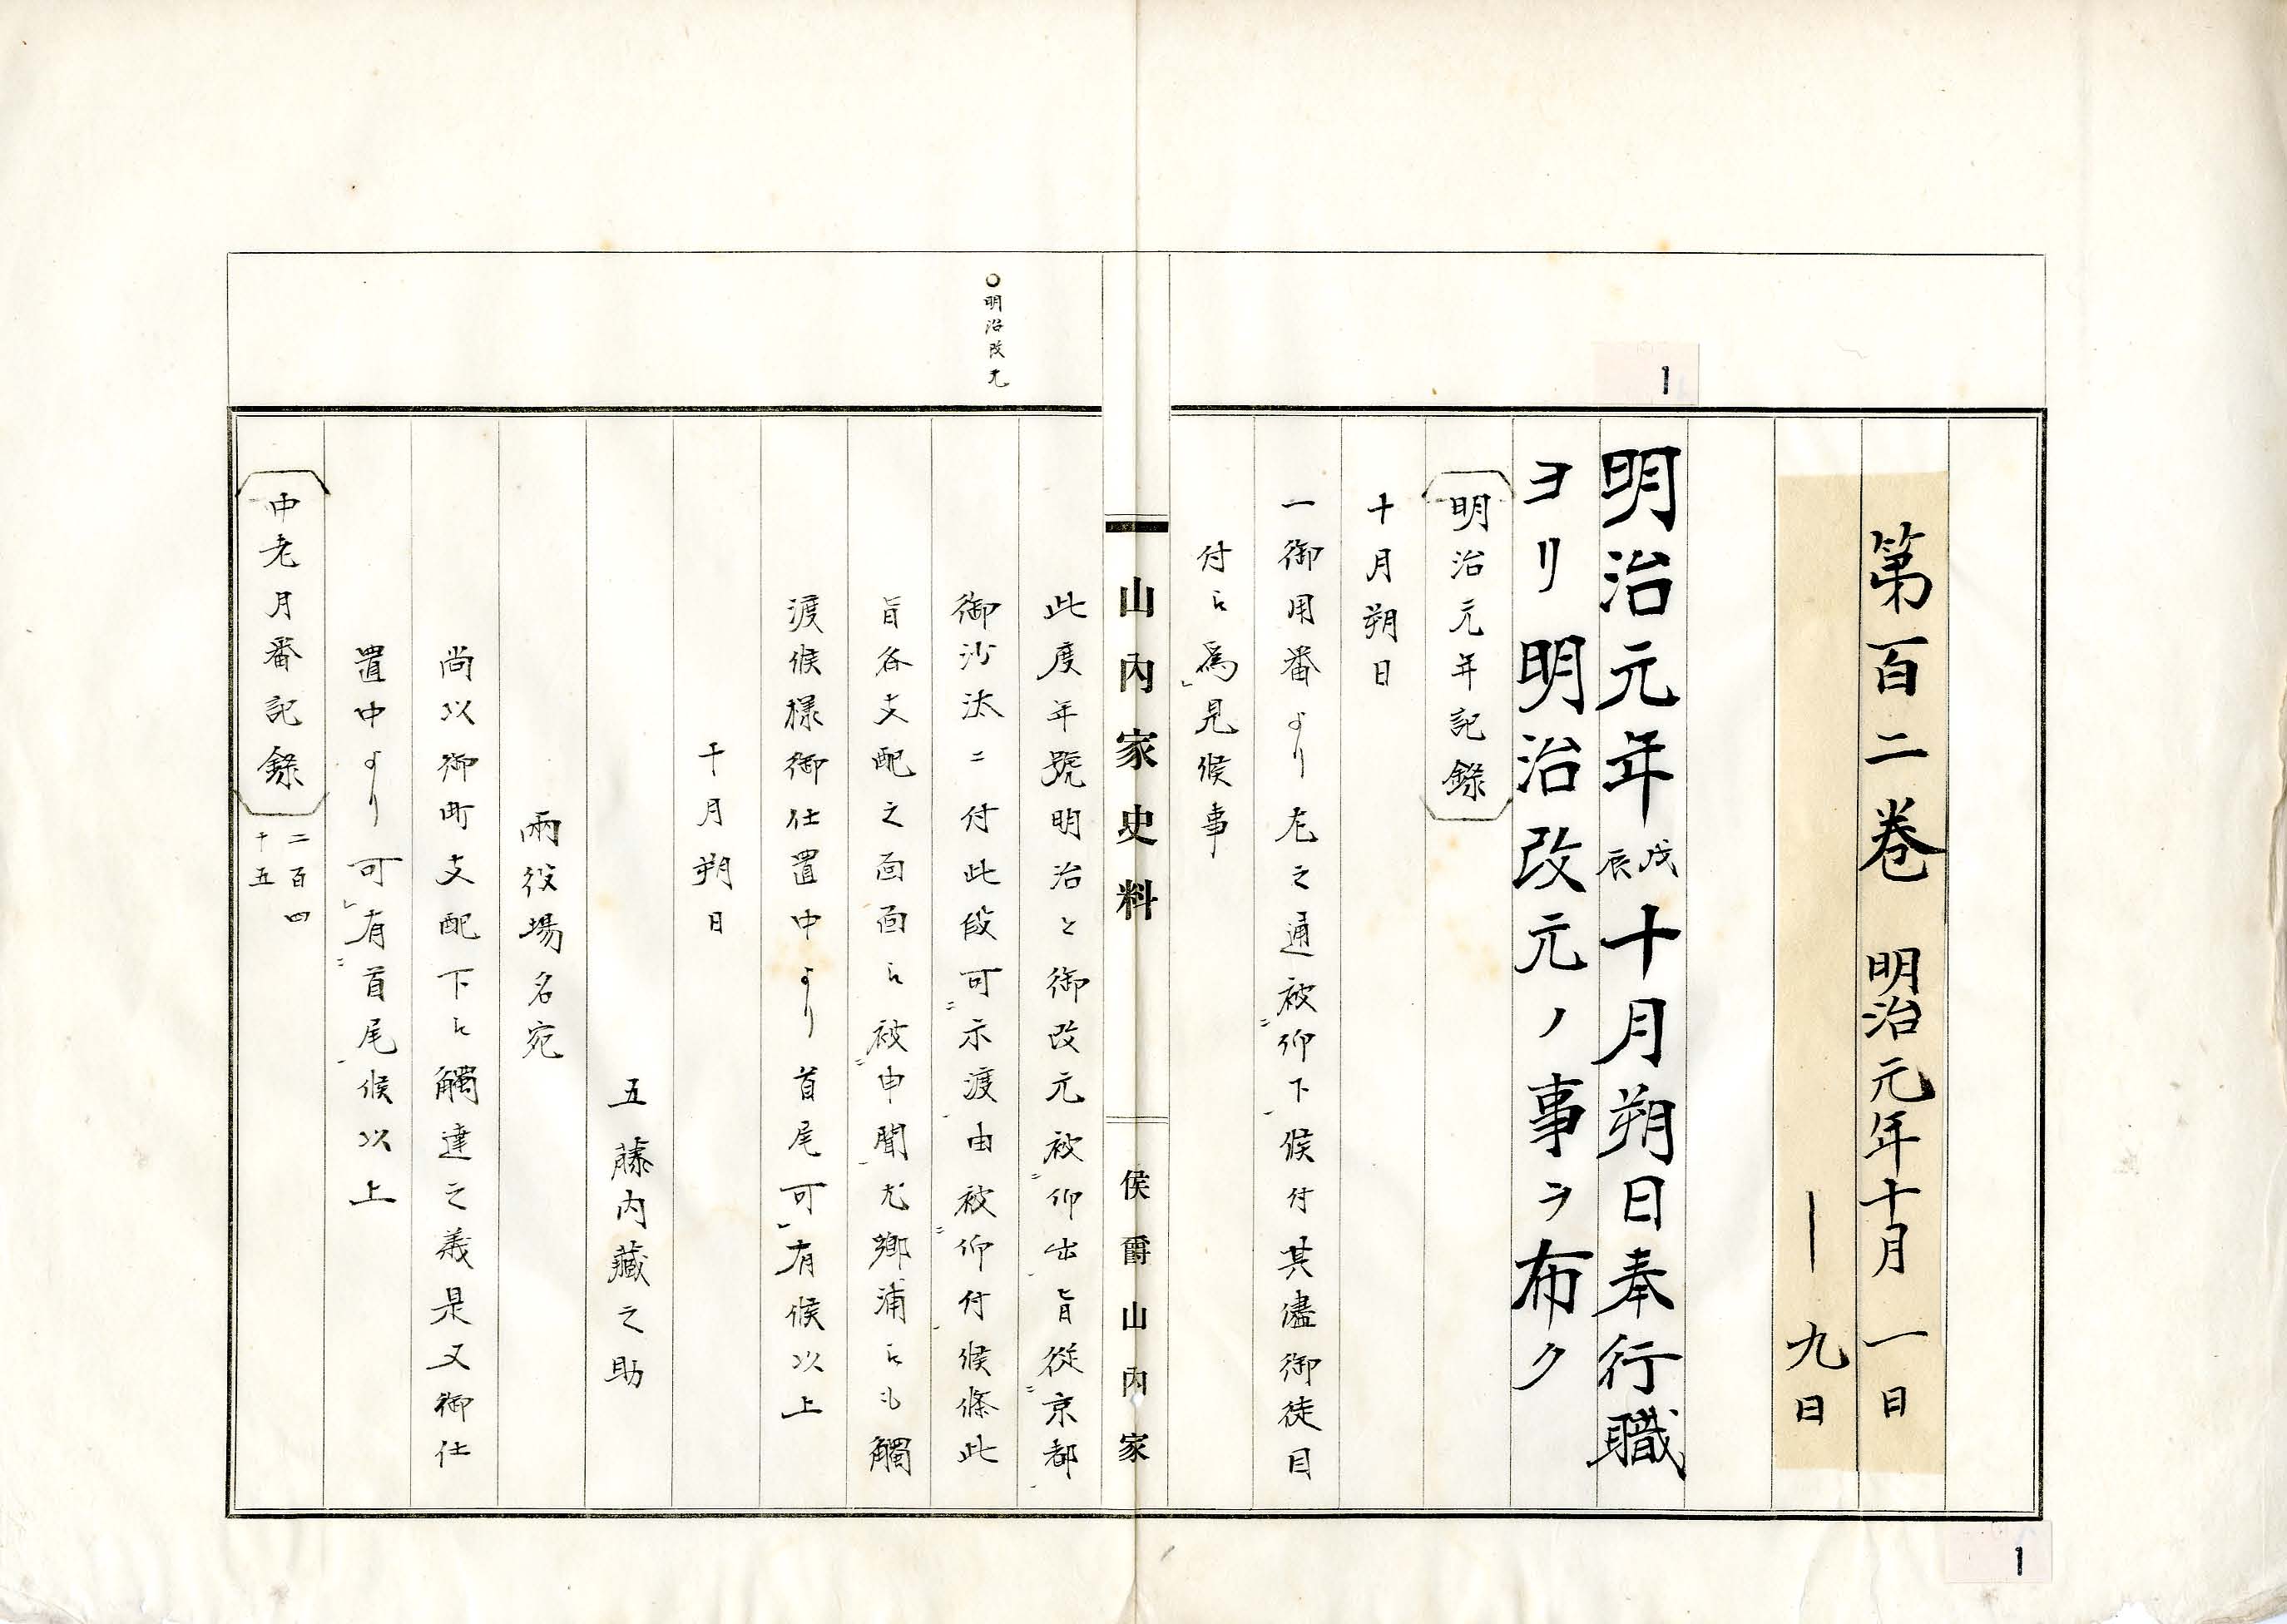 第百二卷　明治元年十月　一日
―九日
1
明治元年戊辰十月朔日奉行職
ヨリ明治改元ノ事ヲ布ク
明治元年記錄
十月朔日
一御用番ゟ左之通被仰下候付其儘御徒目
付ニ為見候事
山內家史料
侯爵山內家
○明治改元
此度年號明治と御改元被仰出旨從京都
御沙汰ニ付此段可示渡由被仰付候條此
旨各支配之面面ニ被申聞尤鄉浦ニも觸
渡候樣御仕置中ゟ首尾可有候以上
十月朔日
五藤內藏之助
兩役場名宛
尚以御町支配下ニ觸達之義是又御仕
置中ゟ可有首尾候以上
中老月番記錄 二百四十五
1